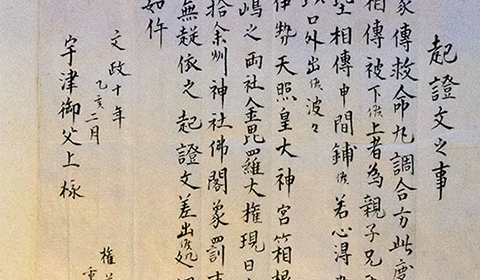 起證文之事
家傳救命丸調合方此度
相傳被下候上者為親子兄
堅相傳申間鋪候若心得
口外出候波々
伊勢天照皇大神宮箱根
嶋之両社金毘羅大権現日
拾余州神社佛閣蒙罰
無疑依之起證文差出候処
如件
文政十年
亥二月
宇津御父上様
権